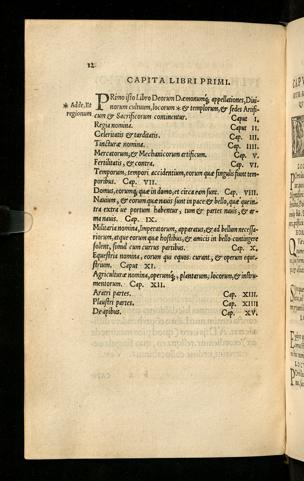 12
CAPITA LIBRI PRIMI.
PRimo isto Libro Deorum Dæmonumq́; appellationes, Divi-
norum cultuum, locorum * & templorum, & sedes Artifi-
* Adde, Et
regionum.
cum & Sacrificorum continentur. Caput I.
Regia nomina. Caput II.
Celeritatis & tarditatis. Cap. III.
Tincturæ nomina. Cap. IIII.
Mercatorum, & Mechanicorum artificum. Cap. V.
Fertilitatis, & contra. Cap. VI.
Temporum, tempori accidentium, eorum quæ singulis sunt tem-
poribus. Cap. VII.
Domus, eorumq́; quæ in domo, et circa eam sunt. Cap. VIII.
Navium, & eorum quæ navis sunt in pace & bello, quæ quæ in-
tra extra ue portum habentur, tum & partes navis, & ar-
ma navis. Cap. IX.
Militaria nomina, Imperatorum, apparatus, & ad bellum necessa-
riorum, atque eorum quæ hostibus, & amicis in bello contingere
solent, simul cum currus partibus. Cap. X.
Equestria nomina, eorum qui equos curant, & operum eque-
strium. Caput XI.
Agriculturæ nomina, operumq́;, plantarum, locorum, & instru-
mentorum. Cap. XII.
Aratri partes. Cap. XIII.
Plaustri partes. Cap. XIIII
De apibus. Cap. XV.